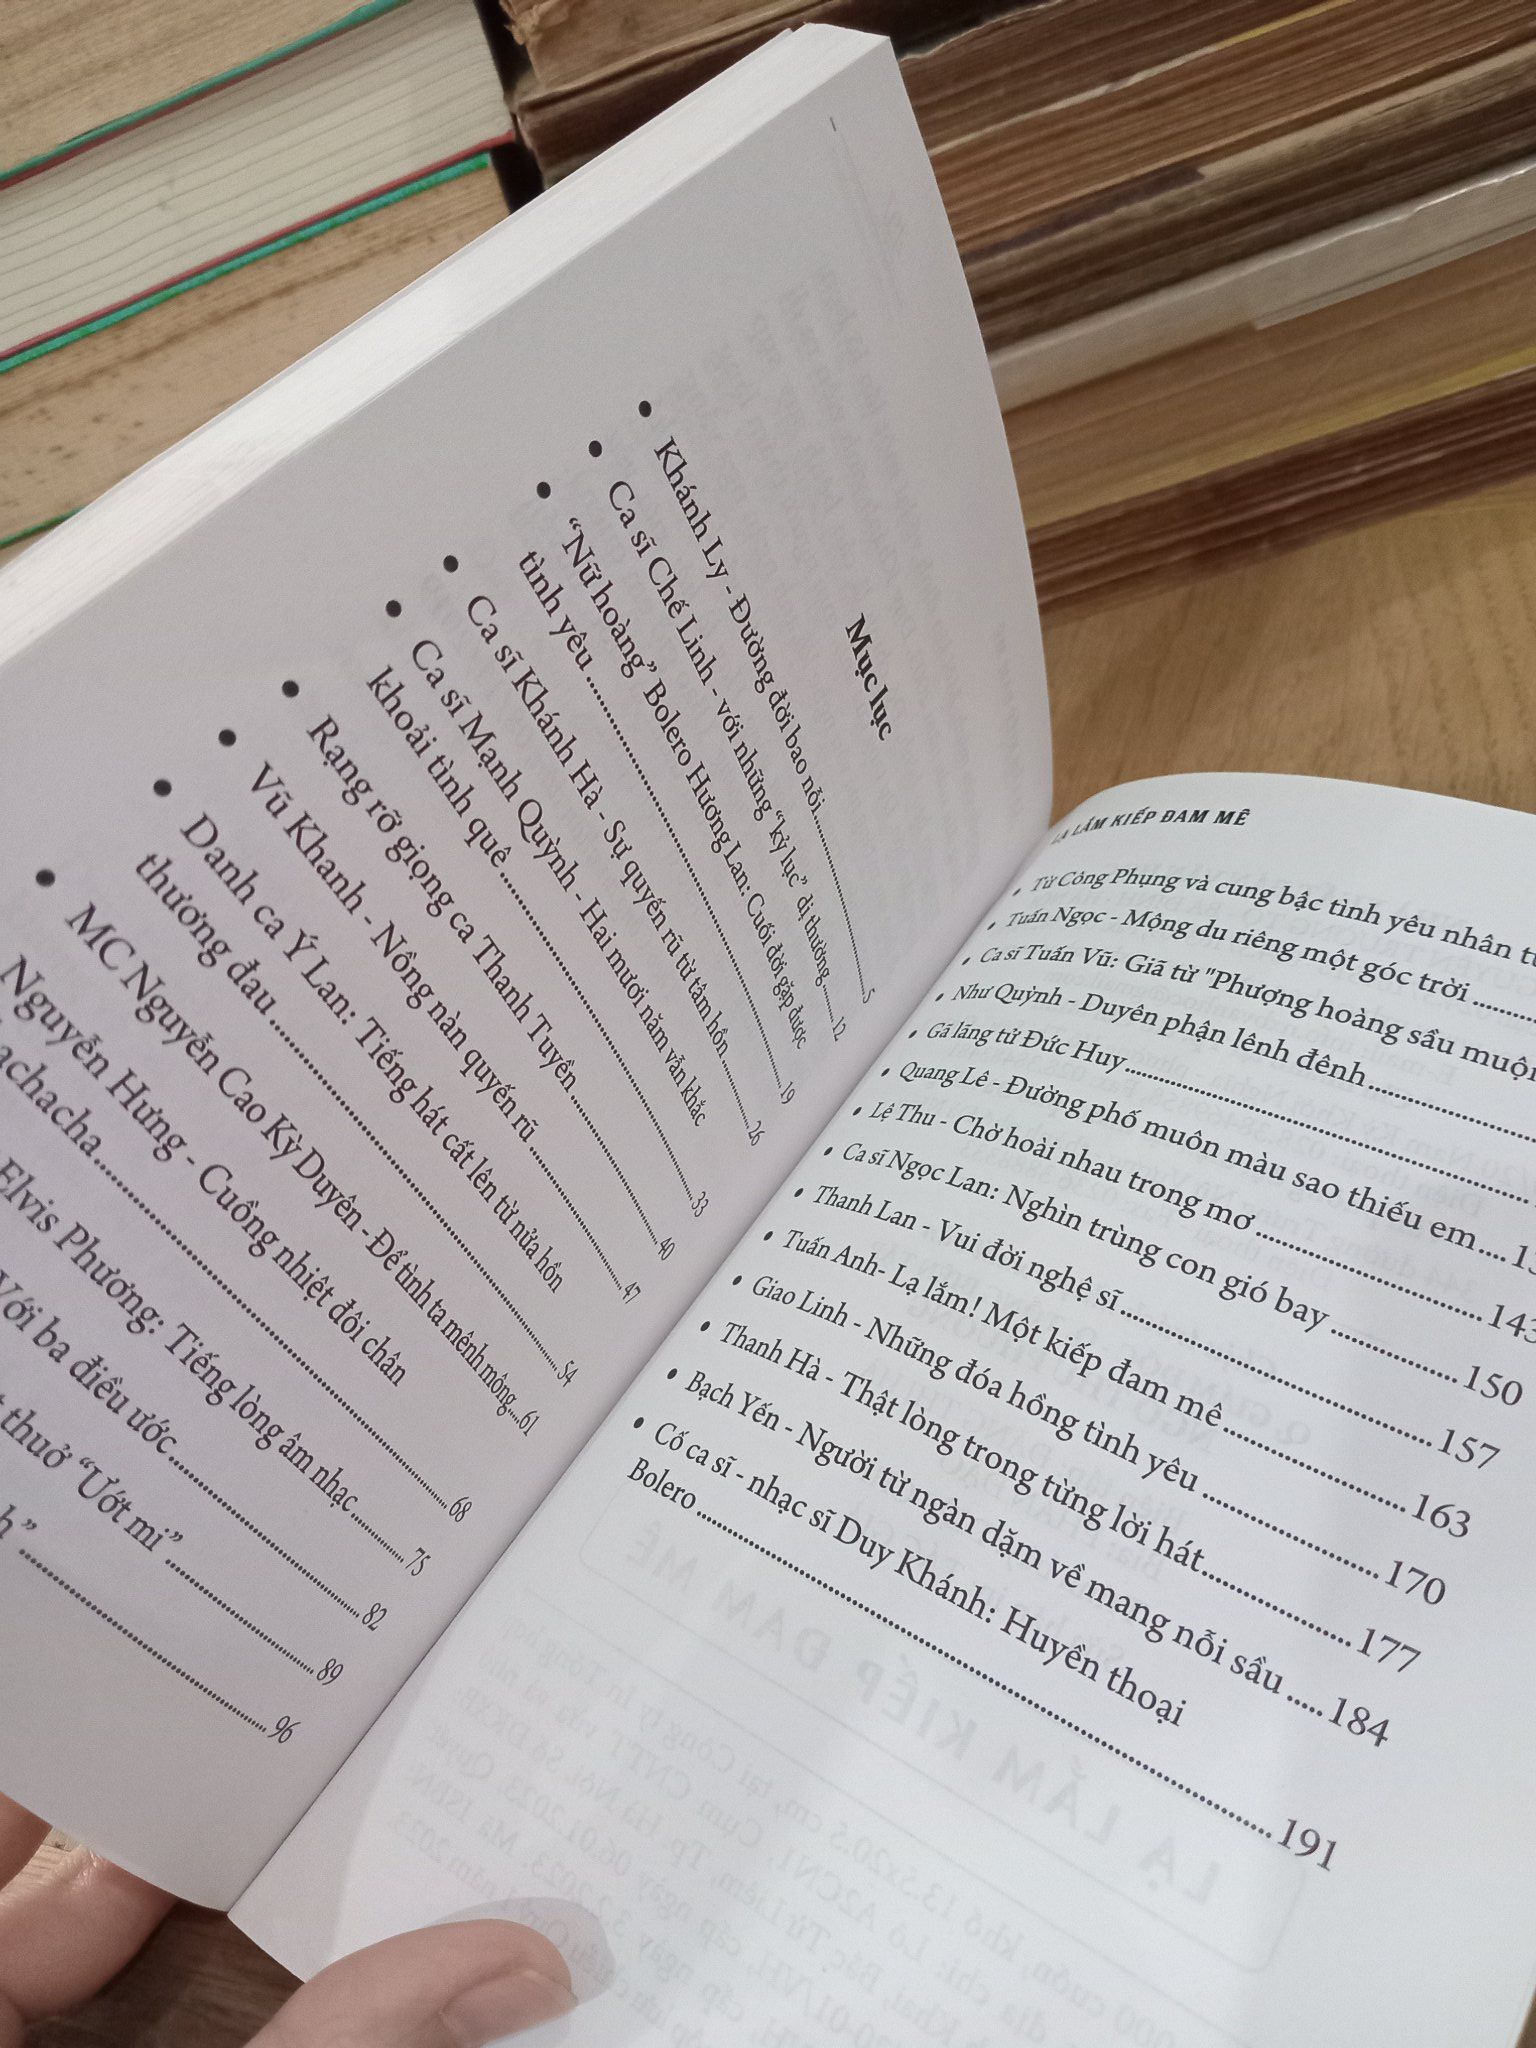 Mục lục
• Khánh Ly - Đường đời bao nỗi 5
• Ca sĩ Chế Linh - với những “kỷ lục” dị thường 12
• “Nữ hoàng” Bolero Hương Lan: Cuối đời gặp được
tình yêu 19
• Ca sĩ Khánh Hà - Sự quyến rũ từ tâm hồn 26
• Ca sĩ Mạnh Quỳnh - Hai mươi năm vẫn khắc
khoải tình quê 33
• Rạng rỡ giọng ca Thanh Tuyền 40
• Vũ Khanh - Nồng nàn quyến rũ 47
• Danh ca Ý Lan: Tiếng hát cất lên từ nửa hồn
thương đau 54
• MC Nguyễn Cao Kỳ Duyên - Để tình ta mênh mông 61
Nguyễn Hưng - Cuồng nhiệt đôi chân
chacha 68
Elvis Phương: Tiếng lòng âm nhạc 75
Với ba điều ước 82
thuở “Ướt mi” 89
96
LẠ LẮM KIẾP ĐAM MÊ
• Từ Công Phụng và cung bậc tình yêu nhân
• Tuấn Ngọc - Mộng du riêng một góc trời
• Ca sĩ Tuấn Vũ: Giã từ "Phượng hoàng sầu muộn
• Như Quỳnh - Duyên phận lênh đênh
• Gã lãng tử Đức Huy
• Quang Lê - Đường phố muôn màu sao thiếu em
• Lệ Thu - Chờ hoài nhau trong mơ 143
• Ca sĩ Ngọc Lan: Nghìn trùng con gió bay 150
• Thanh Lan - Vui đời nghệ sĩ 157
• Tuấn Anh- Lạ lắm! Một kiếp đam mê 163
• Giao Linh - Những đóa hồng tình yêu 170
• Thanh Hà - Thật lòng trong từng lời hát 177
• Bạch Yến - Người từ ngàn dặm về mang nỗi sầu 184
• Cố ca sĩ - nhạc sĩ Duy Khánh: Huyền thoại
Bolero 191